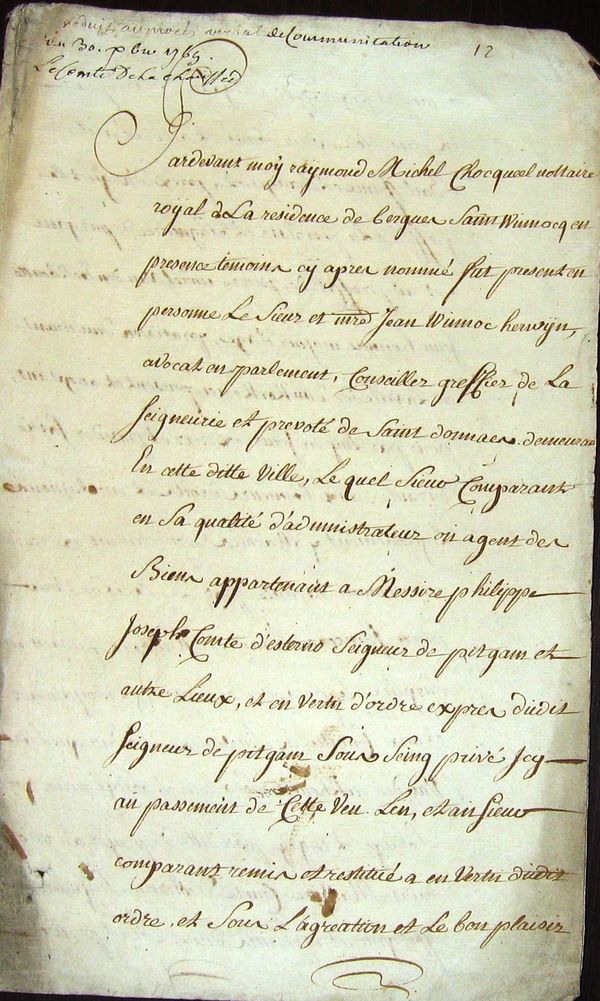 produit au procès verbal de Communication
du 30. 9bre 1769.
Le Comte De la chaussée
12
Pardevant moy raymond Michel Chocqueel nottaire
royal à La residence de bergues Saint Winnocq en
presence temoins cy apres nommé fut present en
personne Le Sieur et mre Jean Winnoc herwyn,
avocat en parlement, Conseiller greffier de La
Seigneurie et prevoté de Saint donnaes demeurant
En cette ditte Ville, Le quel Sieur Comparant
en Sa qualité d'administrateur ou agent des
Biens appartenant a Messire philippe
Joseph Comte d'esterno Seigneur de pitgam et
autre Lieux, et en Vertu d'ordre expres dudit
Seigneur de pitgam Sous Seing privé Jcy
au passement de Cette Veu Leu, et au Sieur
comparant remis et restitué a en Vertu dudit
ordre, et Sous L'agreation et Le bon plaisir